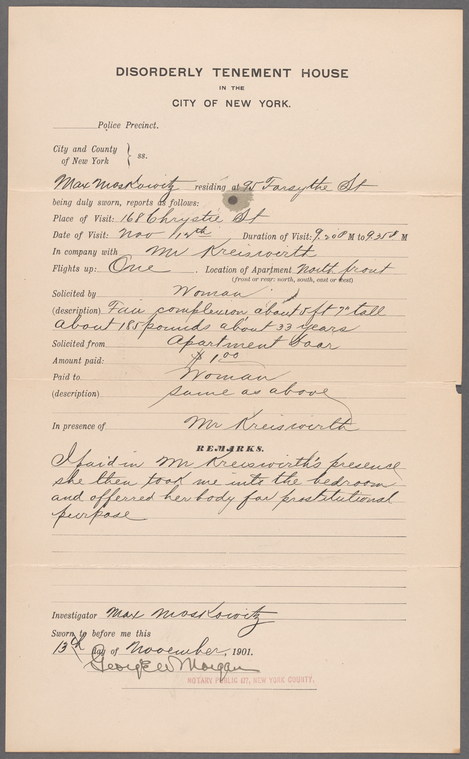 DISORDERLY TENEMENT HOUSE
IN THE
CITY OF NEW YORK.
Police Precinct.
City and County
of New York } ss.
Max Moskowitz residing at 95 Forsythe St
being duly sworn, reports as follows:
Place of Visit: 168 Chrystie St
Date of Visit: Nov 12th Duration of Visit: 9.20 P M to 9.35 P M
In company with Mr Kreiswirth
Flights up: One . Location of Apartment North front
(front or rear: north, south, east or west)
Solicited by Woman
(description) Fair complexion about 5 ft 7" tall
about 185 pounds about 33 years
Solicited from Apartment Door
Amount paid: $1.00
Paid to Woman
(description) same as above
In presence of Mr Kreiswirth
REMARKS.
I paid in Mr Kreiswirth's presence
she then took me into the bedroom
and offerred her body for prostitutional
purpose
Investigator Max Moskowitz
Sworn to before me this
13th day of November, 1901.
George W Morgan
NOTARY PUBLIC NEW YORK COUNTY.